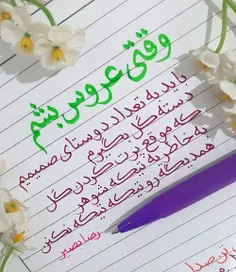 وقتی عروس بشم
باید به تعداد دوستای صمیمیم
دسته گل بگیرم
که موقع پرت کردن گل
به خاطر یه تیکه شوهر
همدیگه رو تیکه تیکه نکنن
رضا نصیر